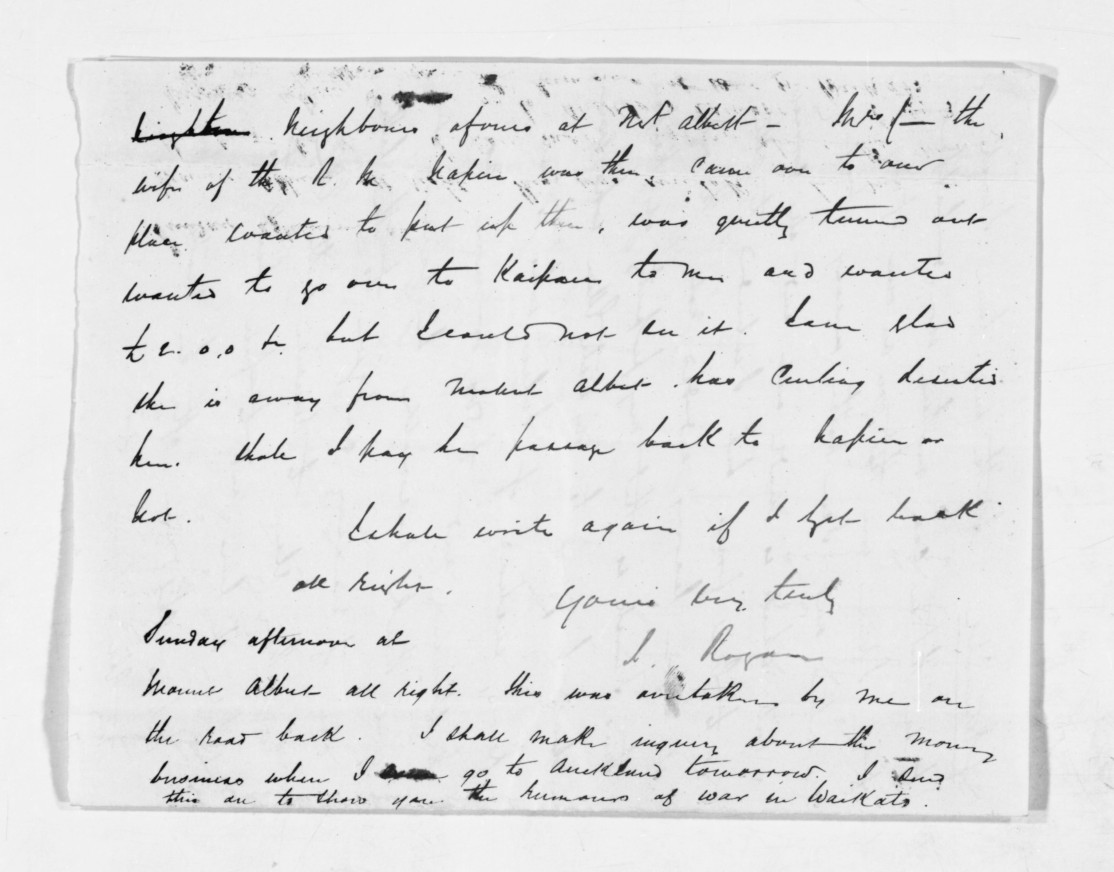 Neighbours of ours at Mt. Albert - Mrs C— the
wife of the R. M. Napier was then, came over to our
place wanted to put up there, was quietly turned out
wanted to go over to Kaipara to me and wanted
but I could not do it. I am glad
she is away from Mount Albert. has deserted
her. Shall I pay her passage back to Napier or
not.
I shall write again if I get back
all right.
Yours very truly
J. Rogan
Sunday afternoon at
Mount Albert all right. this was overtaken by me on
the road back. I shall make inquiry about the money
business when I go to Auckland tomorrow. I send
this on to show you the rumours of war in Waikato.